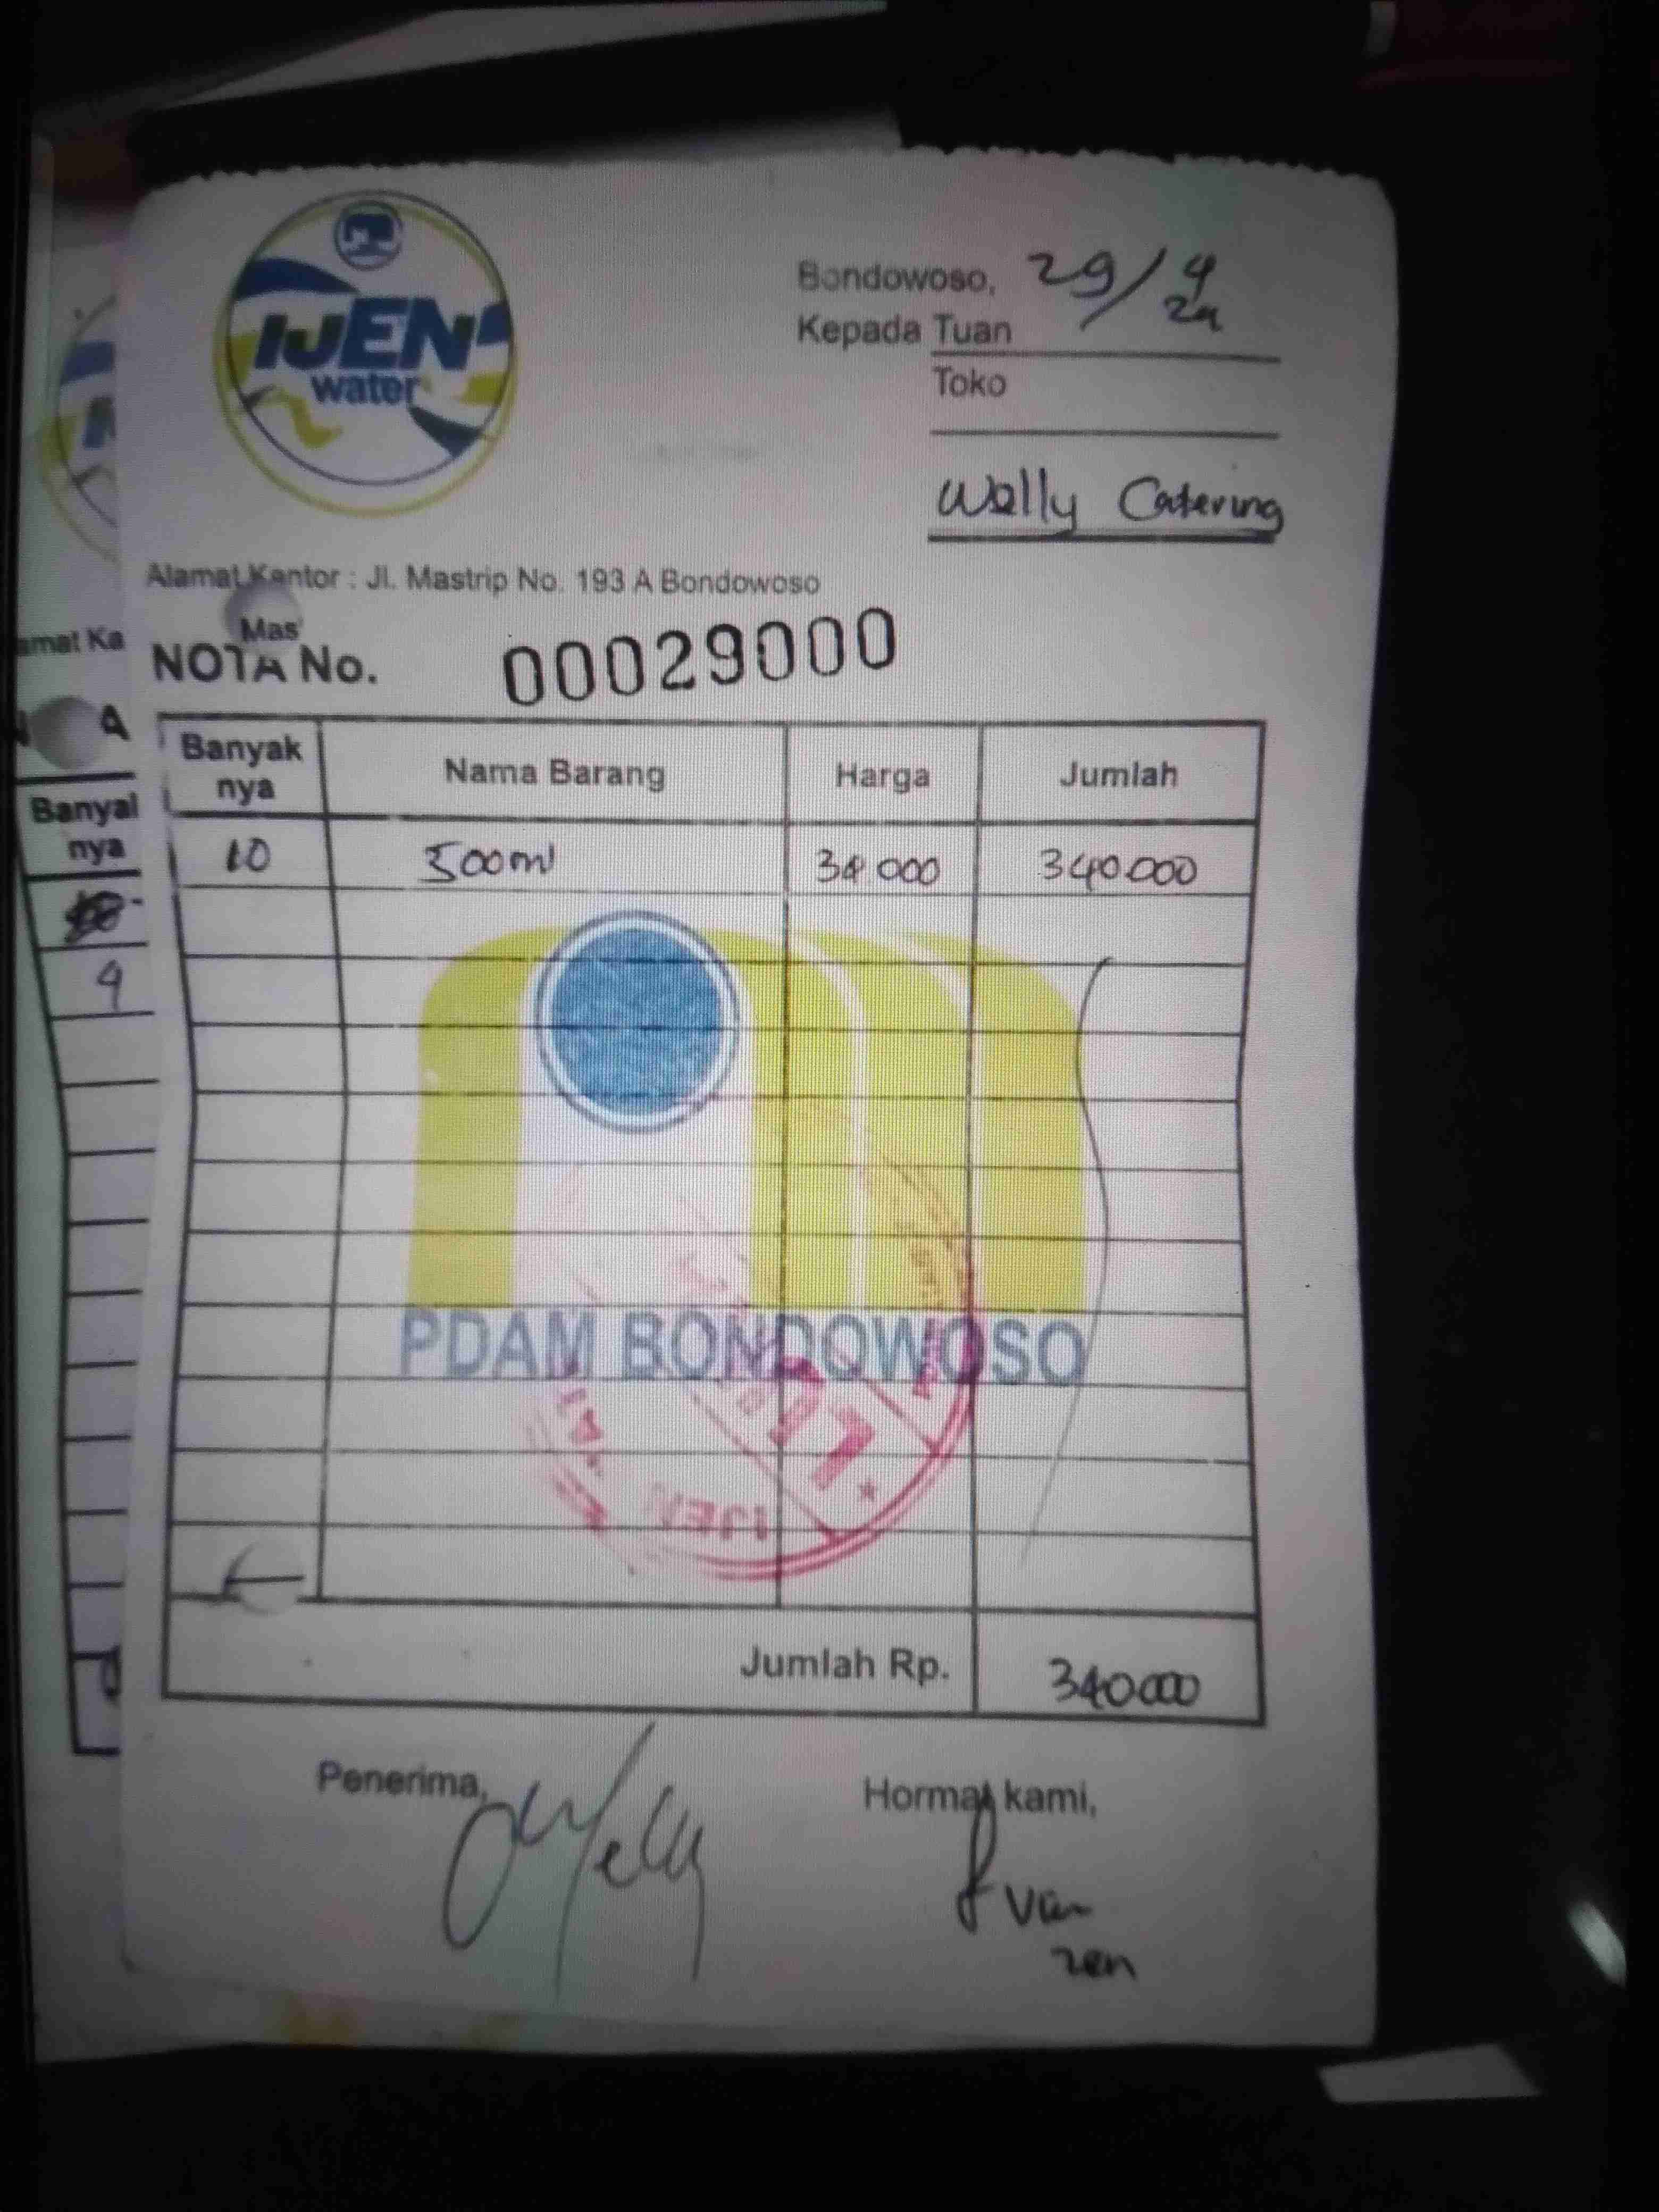 IJEN
water
Bondowoso, 29/4
24
Kepada Tuan
Toko
Wally Catering
Alamat Kantor : Jl. Mastrip No. 193 A Bondowoso
Mas
NOTA No. 00029000
Banyak nya Nama Barang Harga Jumlah
10 500ml 34 000 340.000
PDAM BONDOWOSO
IJEN
Jumlah Rp. 340000
Penerima, Hormat kami,
zen
amat Ka
A
Banyal
nya
9